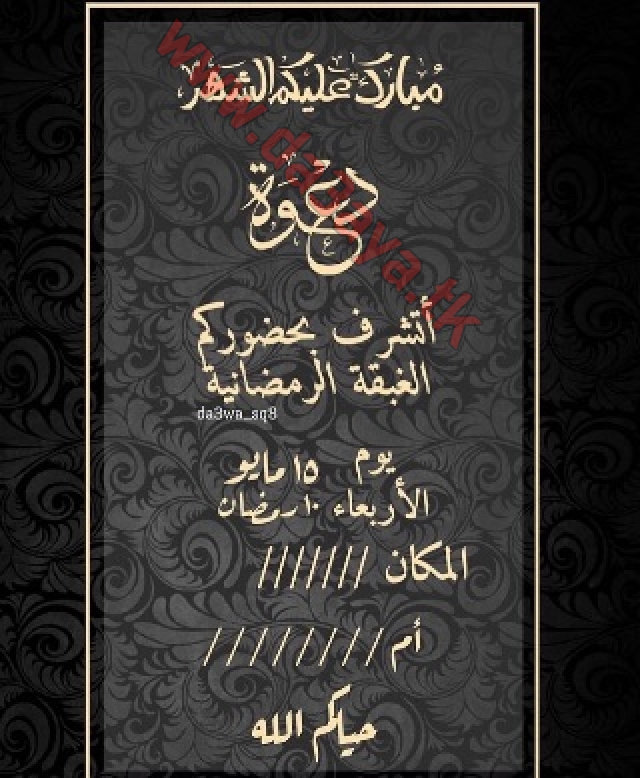 مبارك عليكم الشهر
دعوة
أتشرف بحضوركم
الغبقة الرمضانية
da3wa_sq8
يوم ١٥ مايو
الأربعاء ١٠ رمضان
المكان ///////
أم ////////
حياكم الله
www.da3wa.tk